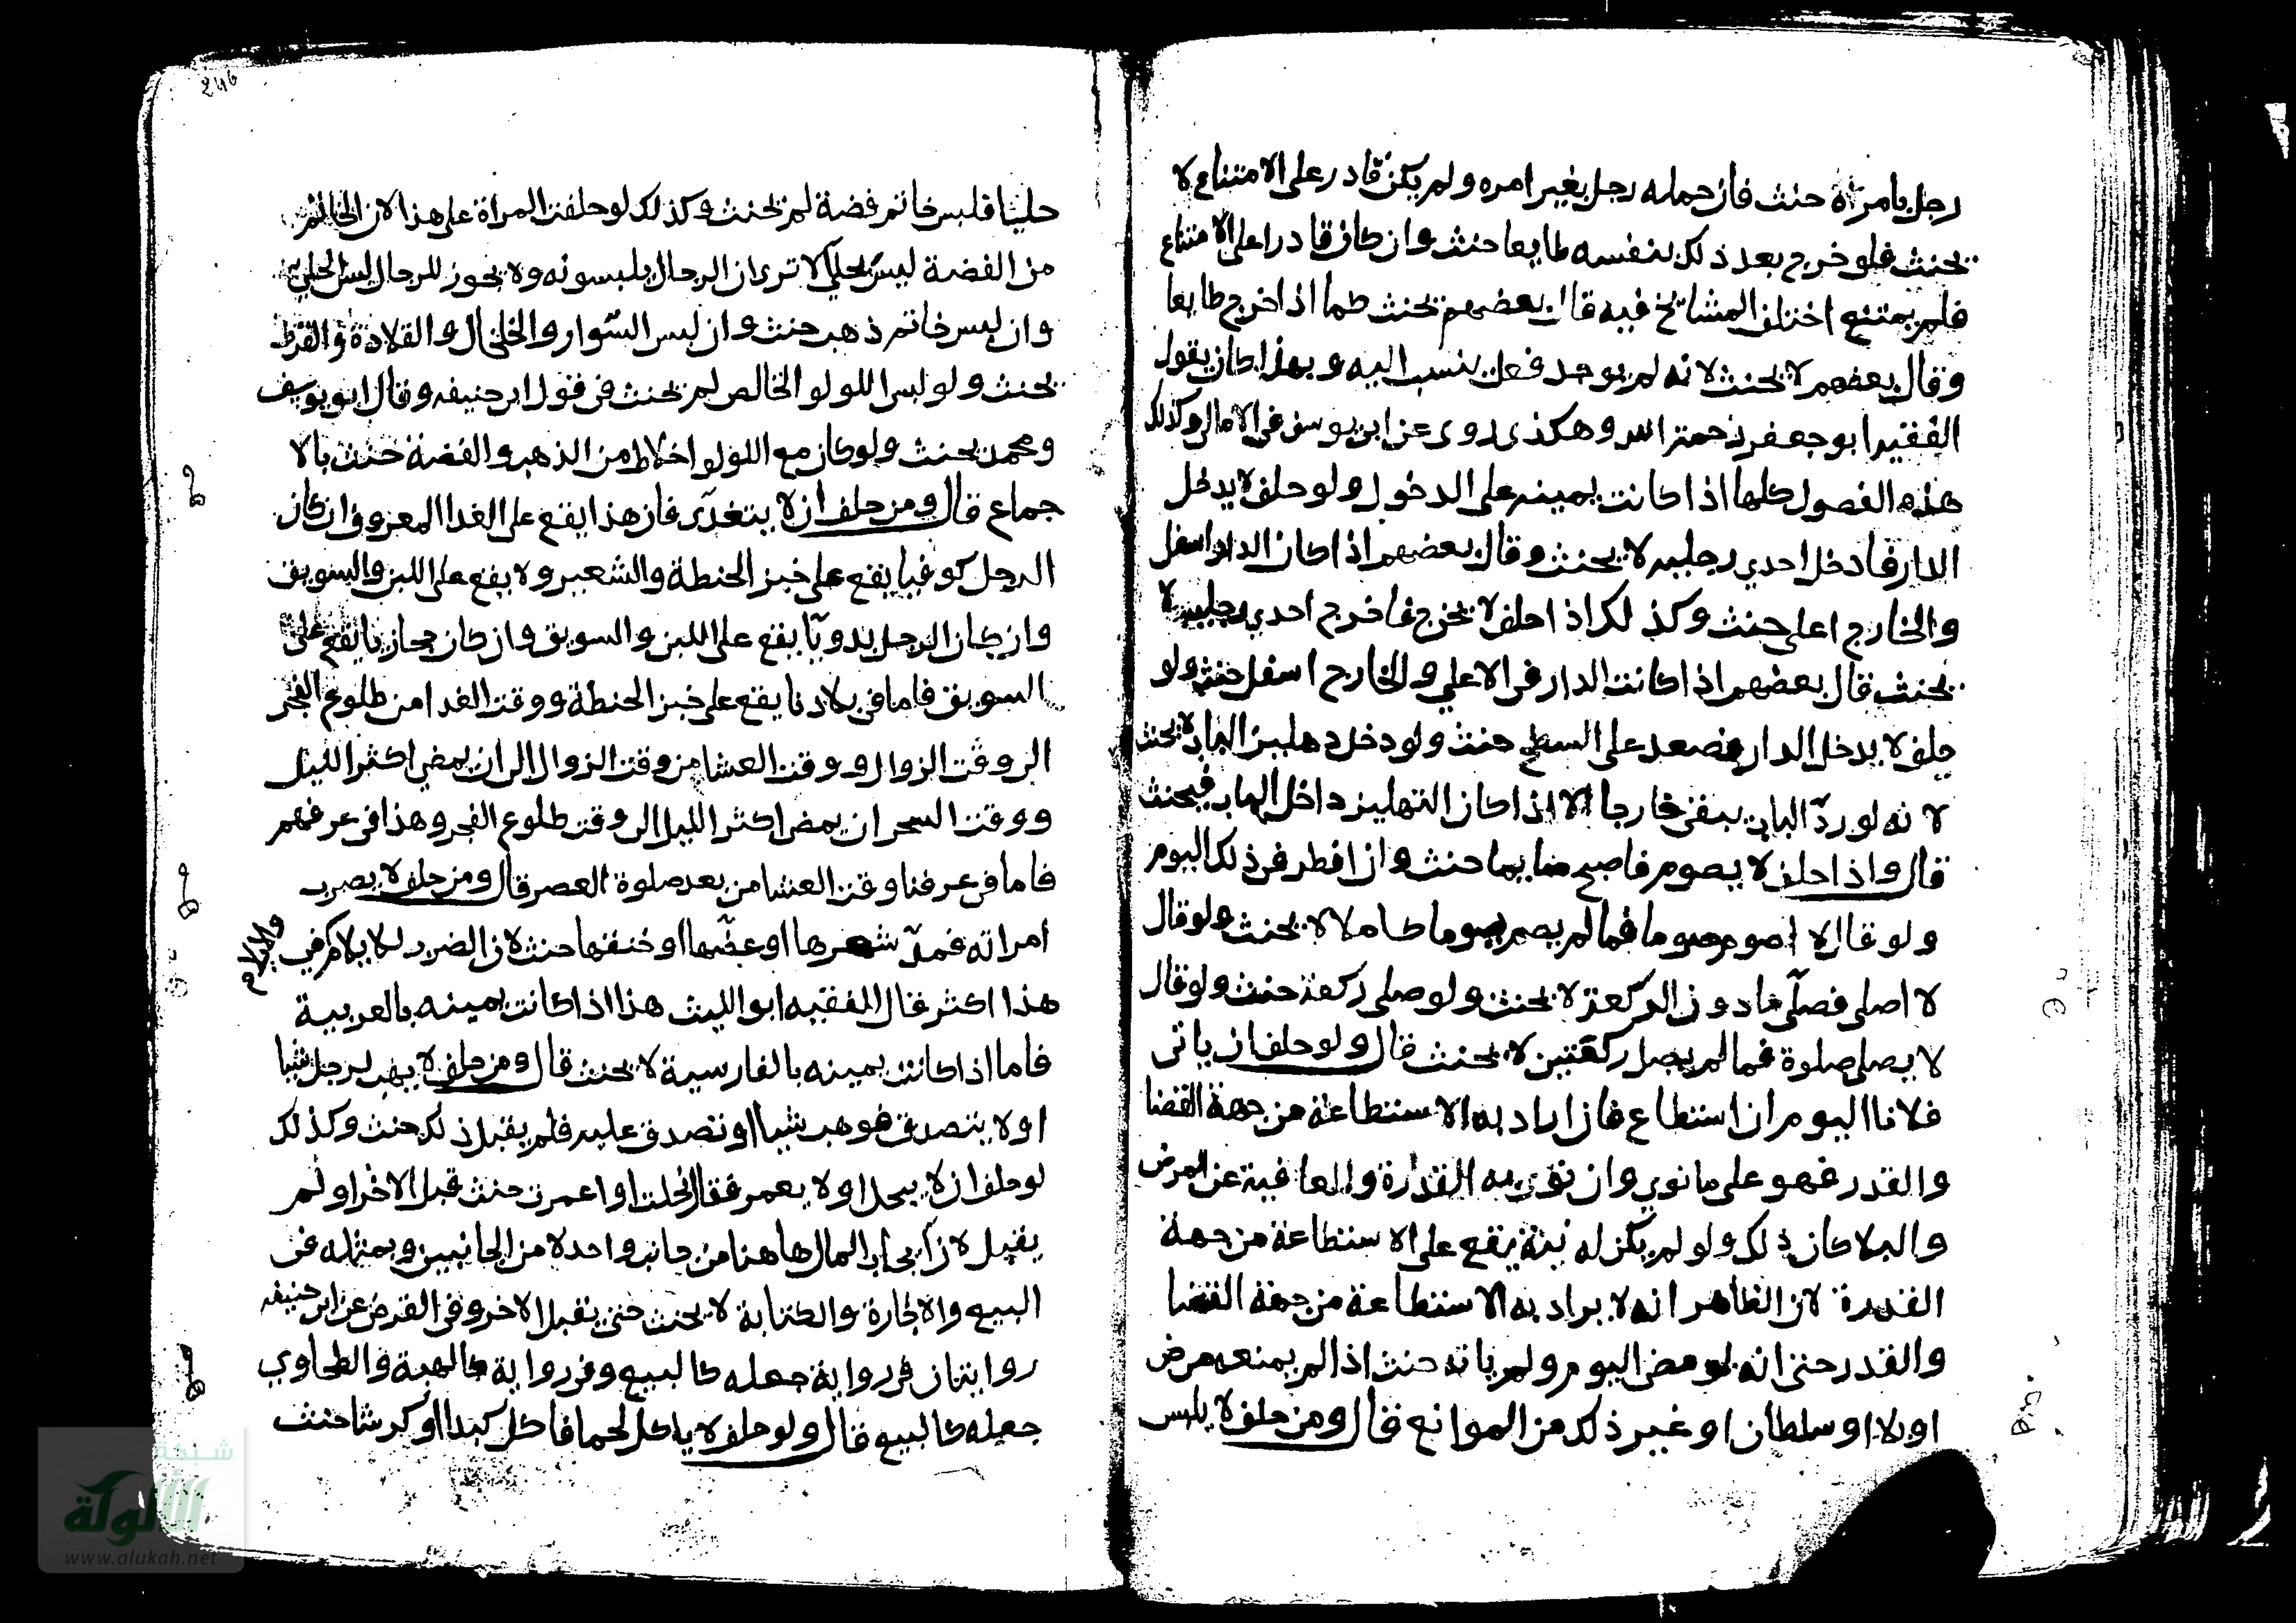 رجل بامراة حنث فان حمله رجل بغير امره ولم يكن قادر على الامتناع لا
يحنث فلو خرج بعد ذلك بنفسه طايعا حنث وان كان قادرا على الامتناع
فلم يمتنع اختلف المشايخ فيه قال بعضهم يحنث كما اذا خرج طايعا
وقال بعضهم لا يحنث لانه لم يوجد فعل ينسب اليه وبهذا كان يقول
الفقيه ابو جعفر رحمة الله وهكذى روى عن ابى يوسف فى الامالى وكذلك
هذه الفصول كلها اذا كانت يمينه على الدخول ولو حلف لا يدخل
الدار فادخل احدي رجليه لا يحنث وقال بعضهم اذا كان الدار اسفل
والخارج اعلى حنث وكذلك اذا حلف لا يخرج فاخرج احدي رجليه لا
يحنث قال بعضهم اذا كانت الدار فى الاعلي والخارج اسفل حنث ولو
حلف لا يدخل الدار فصعد على السطح حنث ولو دخل دهليز الباب لا يحنث
لانه لو ردّ الباب يبقى خارجا الا اذا كان التهليز داخل الباب فيحنث
قال واذا حلف لا يصوم فاصبح صايما حنث وان افطر فى ذلك اليوم
ولو قال لا اصوم صوما فما لم يصم صوما كاملا لا يحنث ولو قال
لا اصلى فصلّى مادون الركعة لا يحنث ولو صلى ركعة حنث ولو قال
لا يصلى صلوة فما لم يصل ركعتين لا يحنث قال ولو حلف ان ياتى
فلانا اليوم ان استطاع فان اراد به الاستطاعة من جهة القضا
والقدر فهو على ما نوي وان نوى به القدرة والعافية عن المرض
والبلا كان ذلك ولو لم يكن له نية يقع على الاستطاعة من جهة
القدرة لان الظاهر انه لا يراد به الاستطاعة من جهة القضا
والقدر حتى انه لو مضى اليوم ولم ياته حنث اذا لم يمنعه مرض
او بلا او سلطان او غير ذلك من الموانع قال ومن حلف لا يلبس
246
حليّا فلبس خاتم فضة لم يحنث وكذلك لو حلفت المراة على هذا لان الخاتم
من الفضة ليس بحلىّ الا ترى ان الرجال يلبسونه ولا يجوز للرجال لبس الحلي
وان لبس خاتم ذهب حنث وان لبس السّوار والخلخال والقلادة والقرط
يحنث ولو لبس اللولو الخالص لم يحنث فى قول ابى حنيفه وقال ابو يوسف
ومحمد يحنث ولو كان مع اللولو اخلاط من الذهب والفضة حنث بالا
جماع قال ومن حلف ان لا يتغدّى فان هذا يقع على الغدا المعروف ان كان
الرجل كوفيا يقع على خبز الحنطة والشعير ولا يقع على اللبن والسويق
وان كان الرجل بدويّا يقع على اللبن والسويق وان كان حجازيا يقع على
السويق فاما فى بلادنا يقع على خبز الحنطة ووقت الغدا من طلوع الفجر
الى وقت الزوال ووقت العشا من وقت الزوال الى ان يمضي اكثر الليل
ووقت السحر ان يمضى اكثر الليل الى وقت طلوع الفجر وهذا فى عرفهم
فاما فى عرفنا وقت العشا من بعد صلوة العصر قال ومن حلف لا يضرب
امراته فمدّ شعرها او عضّها او خنقها حنث لان الضرب للايلام فى
والايلام
هذا اكثر قال الفقيه ابو الليث هذا اذا كانت يمينه بالعربية
فاما اذا كانت يمينه بالفارسية لا يحنث قال ومن حلف لا يهب لرجل شيا
او لا يتصدق فوهب شيا او تصدق عليه فلم يقبل ذلك حنث وكذلك
لو حلف ان لا ينحل او لا يعمر فقال نحلت او اعمرت حنث قبل الاخر او لم
يقبل لان ايجاب المال هاهنا من جانب واحد لا من الجانبين وبمثله فى
البيع والاجارة والكتابة لا يحنث حتى يقبل الاخر وفى القرض عن ابى حنيفه
روايتان فى رواية جعله كالبيع وفى رواية كالهبة والطحاوي
جعله كالبيع قال ولو حلف لا ياكل لحما فاكل كبدا او كرشا حنث
شبكة
الألوكة
www.alukah.net